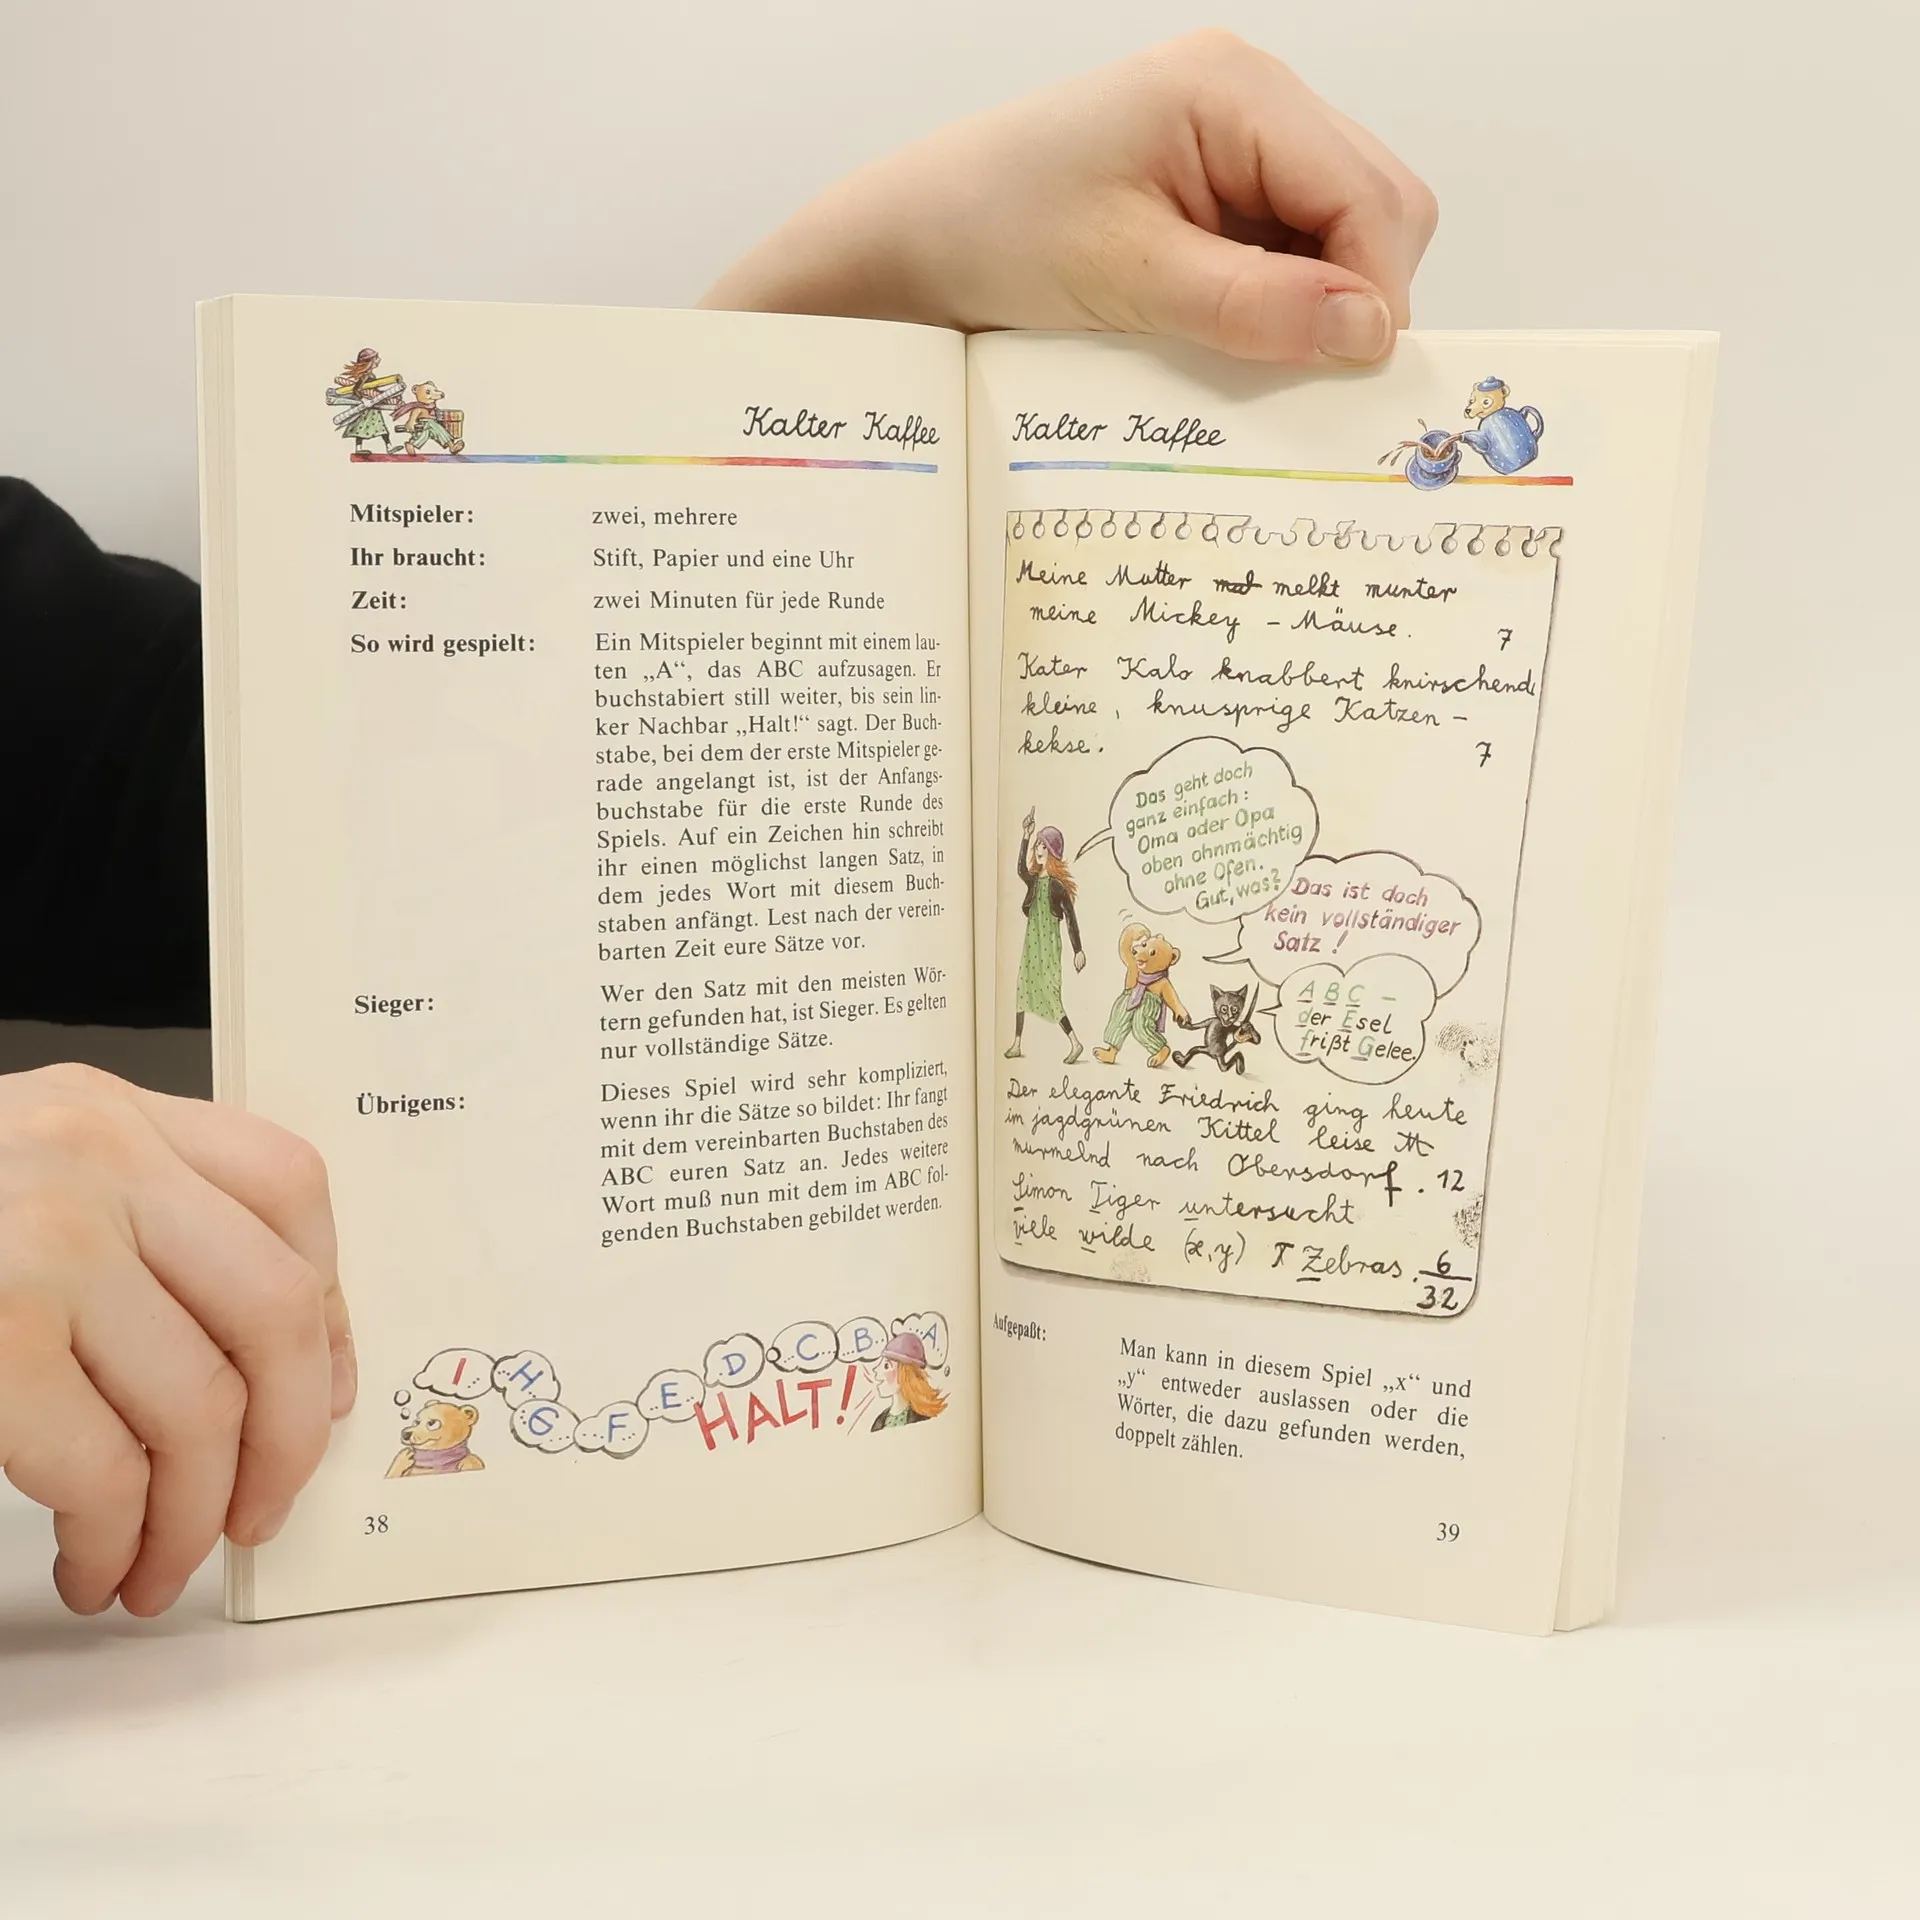 Kalter Kaffee
Mitspieler: zwei, mehrere
Ihr braucht: Stift, Papier und eine Uhr
Zeit: zwei Minuten für jede Runde
So wird gespielt: Ein Mitspieler beginnt mit einem lau-
ten „A“, das ABC aufzusagen. Er
buchstabiert still weiter, bis sein lin-
ker Nachbar „Halt!“ sagt. Der Buch-
stabe, bei dem der erste Mitspieler ge-
rade angelangt ist, ist der Anfangs-
buchstabe für die erste Runde des
Spiels. Auf ein Zeichen hin schreibt
ihr einen möglichst langen Satz, in
dem jedes Wort mit diesem Buch-
staben anfängt. Lest nach der verein-
barten Zeit eure Sätze vor.
Sieger: Wer den Satz mit den meisten Wör-
tern gefunden hat, ist Sieger. Es gelten
nur vollständige Sätze.
Übrigens: Dieses Spiel wird sehr kompliziert,
wenn ihr die Sätze so bildet: Ihr fangt
mit dem vereinbarten Buchstaben des
ABC euren Satz an. Jedes weitere
Wort muß nun mit dem im ABC fol-
genden Buchstaben gebildet werden.
I H G F E D C B A
HALT!
38
Kalter Kaffee
Meine Mutter melkt munter
meine Mickey - Mäuse. 7
Kater Kalo knabbert knirschend
kleine, knusprige Katzen-
kekse. 7
Das geht doch
ganz einfach:
Oma oder Opa
oben ohnmächtig
ohne Ofen.
Gut, was?
Das ist doch
kein vollständiger
Satz!
A B C -
der Esel
frißt Gelee.
Der elegante Friedrich ging heute
im jagdgrünen Kittel leise M
murmelnd nach Obersdorf. 12
Simon Tiger untersucht
viele wilde (x,y) Zebras. 6
32
Aufgepaßt: Man kann in diesem Spiel „x“ und
„y“ entweder auslassen oder die
Wörter, die dazu gefunden werden,
doppelt zählen.
39